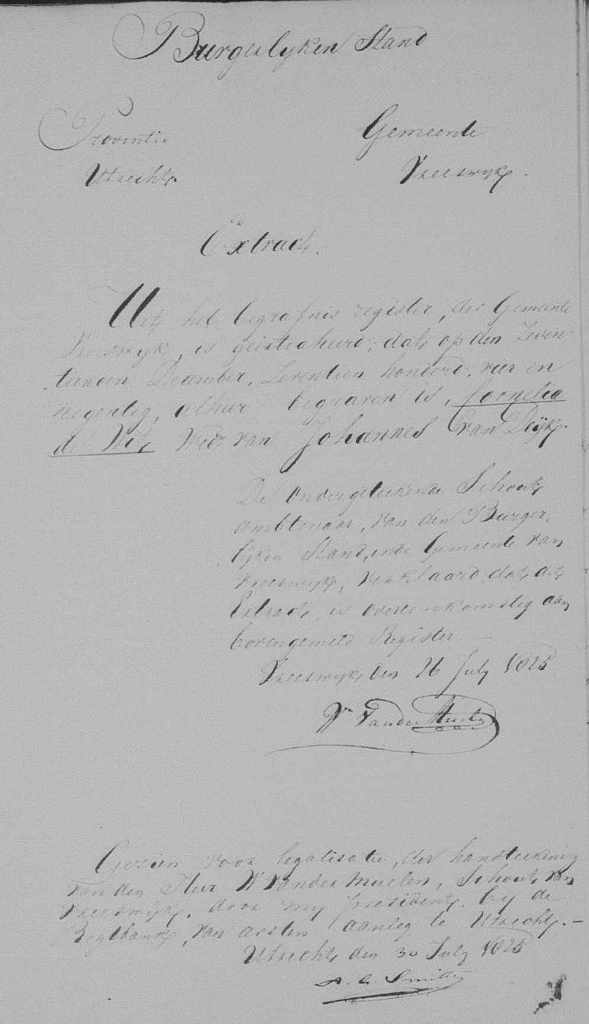 Burgerlyken Stand
Provintie
Utrecht
Gemeente
Vreeswyk.
Extract.
Uit het begrafnis register, der Gemeente
Vreeswyk, is geextraheerd, dat op den Zeven
tienden December, Zeventien honderd vier en
negentig, alhier begraven is, Cornelia
de Wit Wed: van Johannes van Dyk.
De ondergetekende Schout
ambtenaar, van den Burger
lyken Stand, in de Gemeente van
Vreeswyk, verklaard, dat dit
Extract, is overeenkomstig aan
bovengemeld Register
Vreeswyk den 26 July 1825
W Van der Muelen
Gezien voor legalisatie, der handteekening
van den Heer W van der Muelen, Schout van
Vreeswyk, door my president by de
Regtbank, van eersten aanleg te Utrecht.-
Utrecht den 30 July 1825